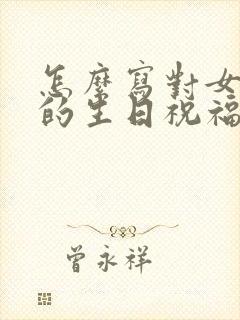 怎麼寫對女
的生日祝福
曾永祥